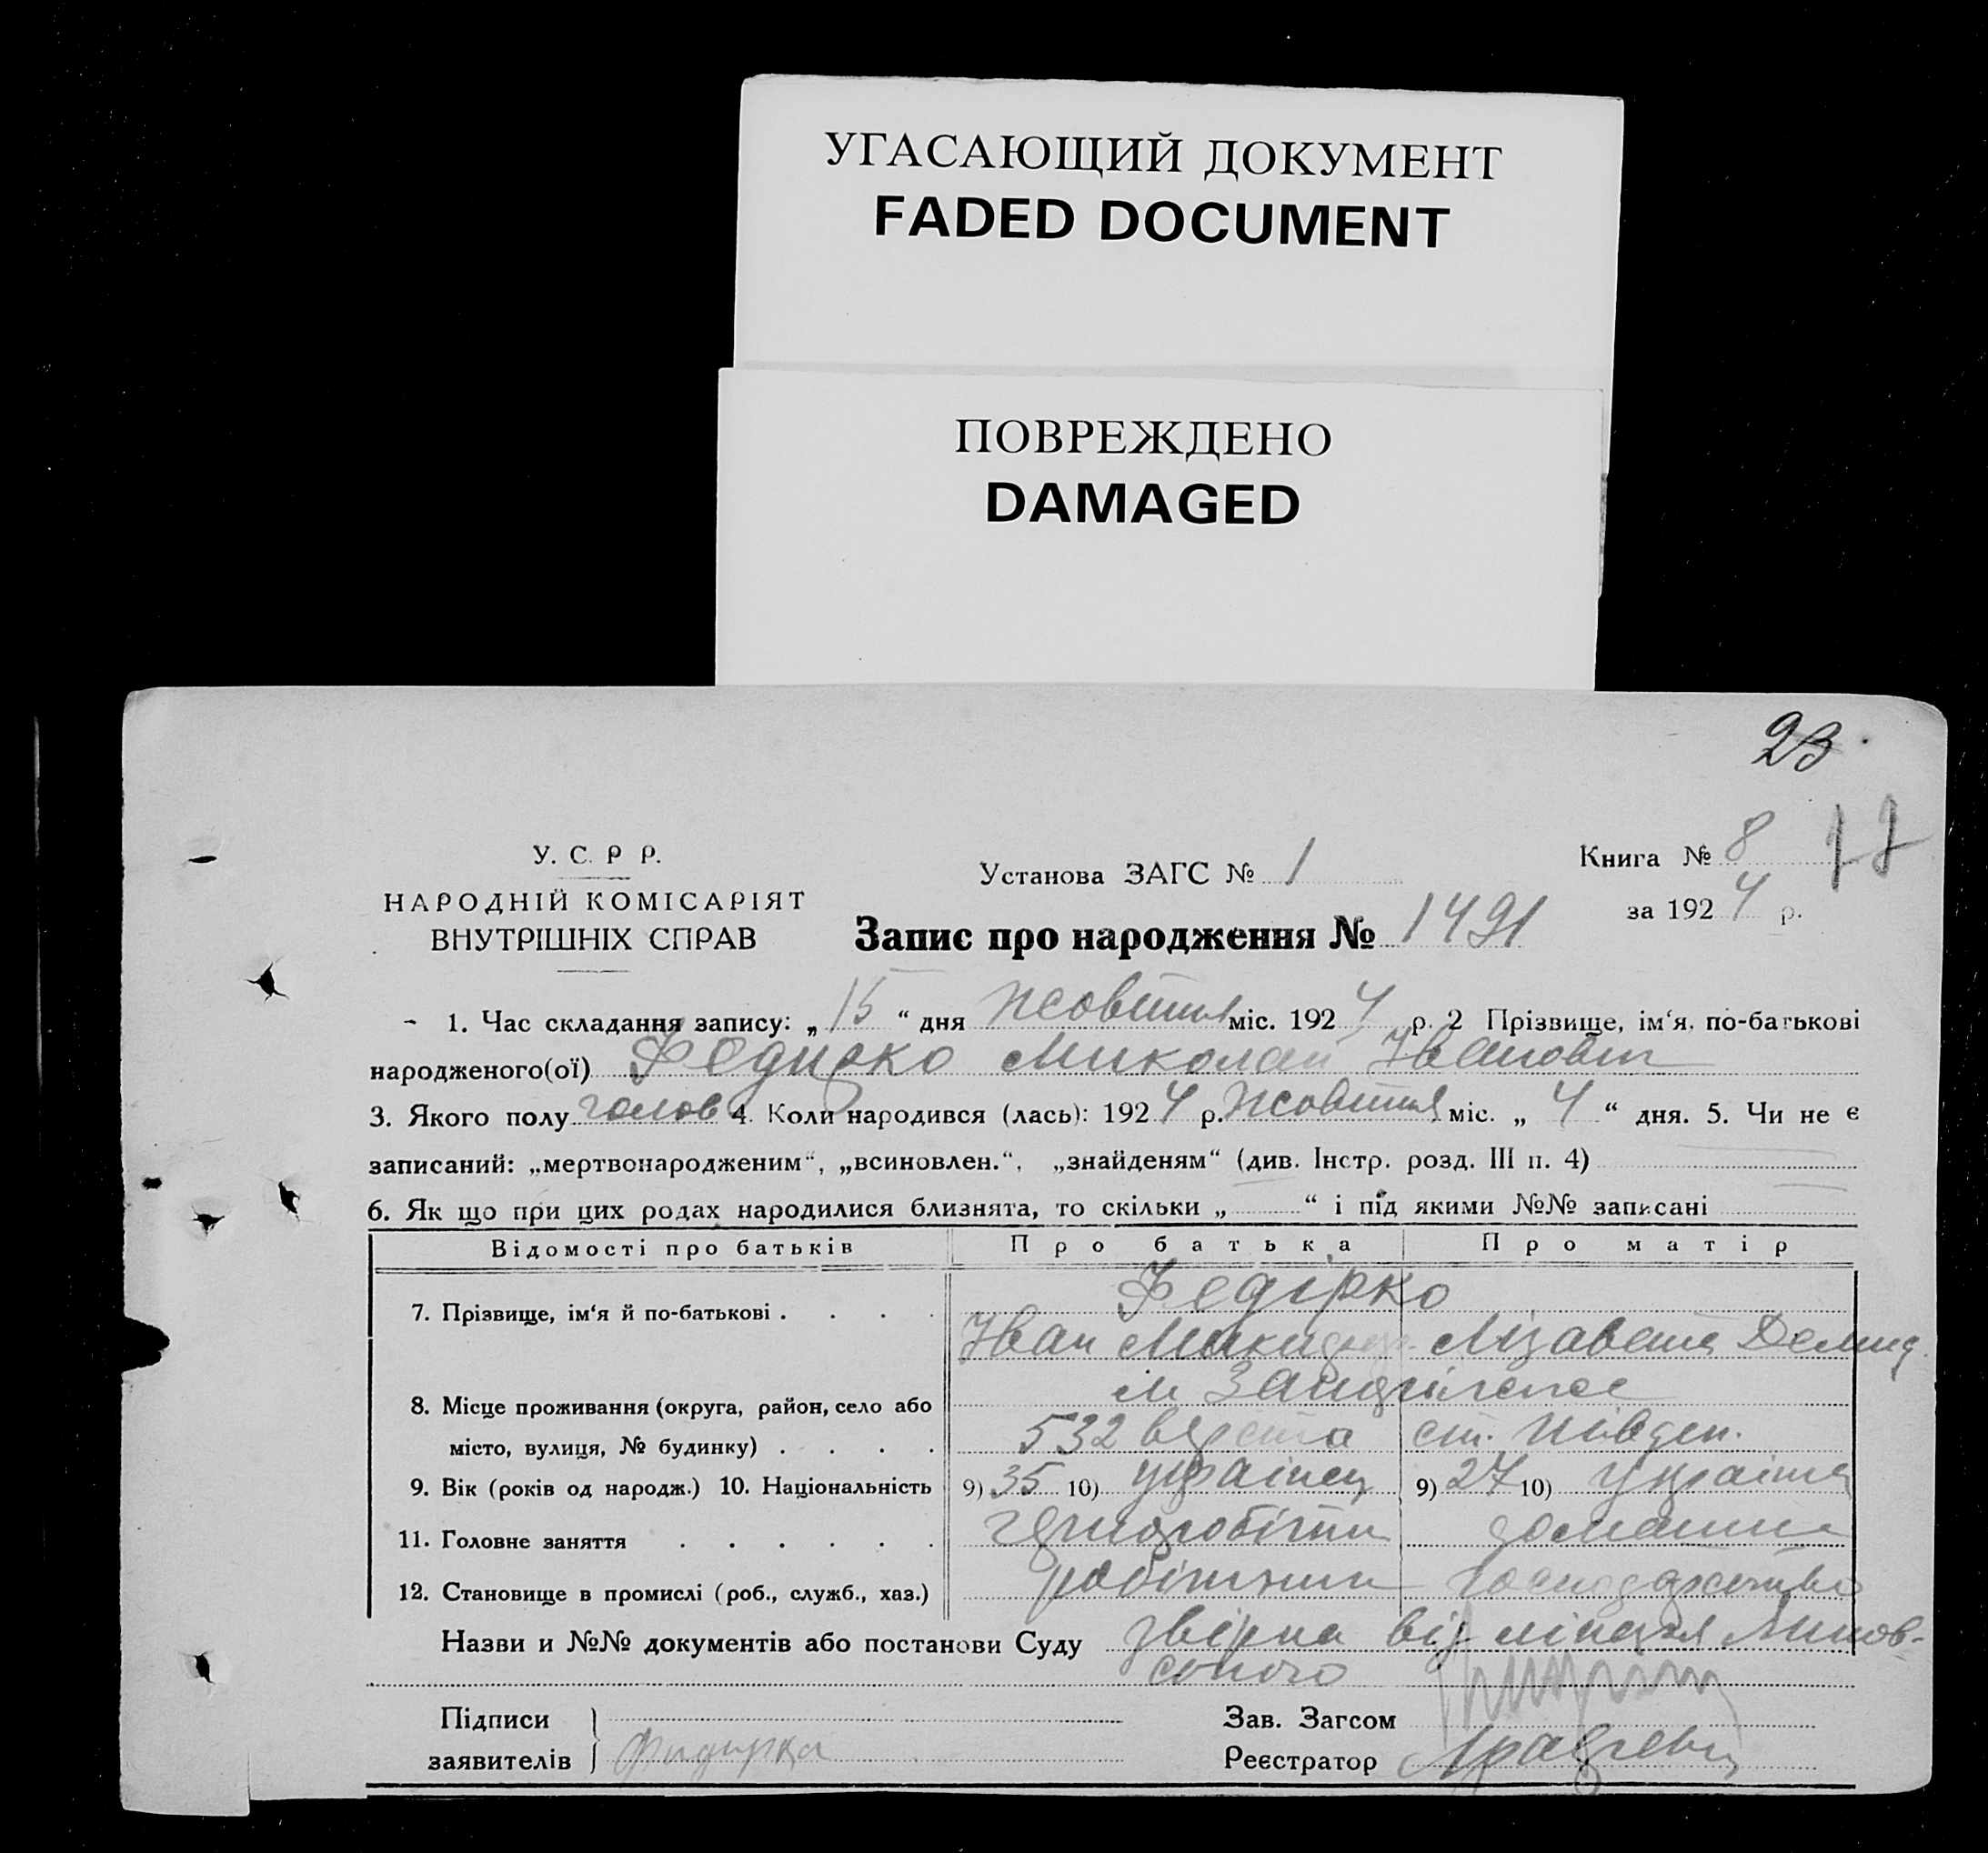 УГАСАЮЩИЙ ДОКУМЕНТ
FADED DOCUMENT
ПОВРЕЖДЕНО
DAMAGED
23
У. С. Р Р.
НАРОДНІЙ КОМІСАРІЯТ
ВНУТРІШНІХ СПРАВ
Установа ЗАГС № 1
Книга № 8
за 1924 р.
Запис про народження № 1491
1. Час складання запису: „ 15 “ дня Жовтня міс. 1924 р. 2 Прізвище, ім‘я, по-батькові
народженого(ої) Федирко Миколай Іванович
3. Якого полу чолов 4. Коли народився (лась): 1924 р. Жовтня міс. „ 4 “ дня. 5. Чи не є
записаний: „мертвонародженим“, „всиновлен.“, „знайденям“ (див. Інстр. розд. III п. 4)
6. Як що при цих родах народилися близнята, то скільки „ “ і під якими №№ записані
Відомості про батьків Про батька Про матір
7. Прізвище, ім‘я й по-батькові . . . . Федірко
Іван Микид Лізавета Демид.
8. Місце проживання (округа, район, село або
місто, вулиця, № будинку) . . . . 532 верста ст. Півден.
9. Вік (років од народж.) 10. Національність 9) 35 10) українец 9) 27 10) українка
11. Головне заняття . . . . . . домашнє
12. Становище в промислі (роб., служб., хаз.) робітник господарство
Назви и №№ документів або постанови Суду від
Підписи
заявителів
Зав. Загсом
Реєстратор